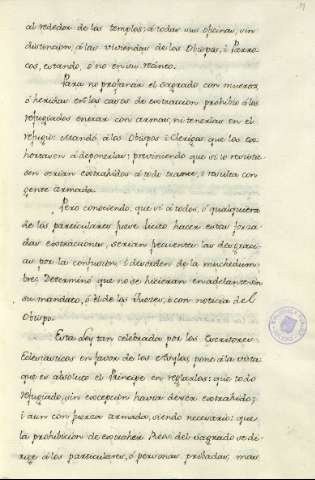 al rededor de los templos; á todas sus oficinas, sin
distincion, á las viviendas de los Obispos, i Parro-
cos, estando, ó no en su reáneo.
Para no profanar el sagrado con muertes
ó heridas en los casos de extraccion prohibio á los
refugiados entrar con armas, ni tenerlas en el
refugio. Mandó á los Obispos i Clerigos que los ex-
hortasen á deponerlas; previniendo que si lo resistie-
sen serian extrahidos á todo trance, i resulta con
gente armada.
Pero conociendo, que si á todos, ó qualquiera
de los particulares fuese licito hacer estas forza-
das extracciones, serian frecuentes las desgra-
cias por la confusion, i desorden de la muchedum-
bre: Determinó que no se hicieran en adelante sin
su mandato, ó el de los Jueces, i con noticia del
Obispo.
Esta Ley tan celebrada por los Escritores
Eclesiasticos en favor de los Asylos, pone á la vista
que es absoluto el Principe en reglarlos: que todo
refugiado, sin excepcion havia de ser extrahido;
i aun con fuerza armada, siendo necesario: que
la prohibicion de extraher Reos del sagrado se di-
rige á los particulares, ó personas privadas, mas